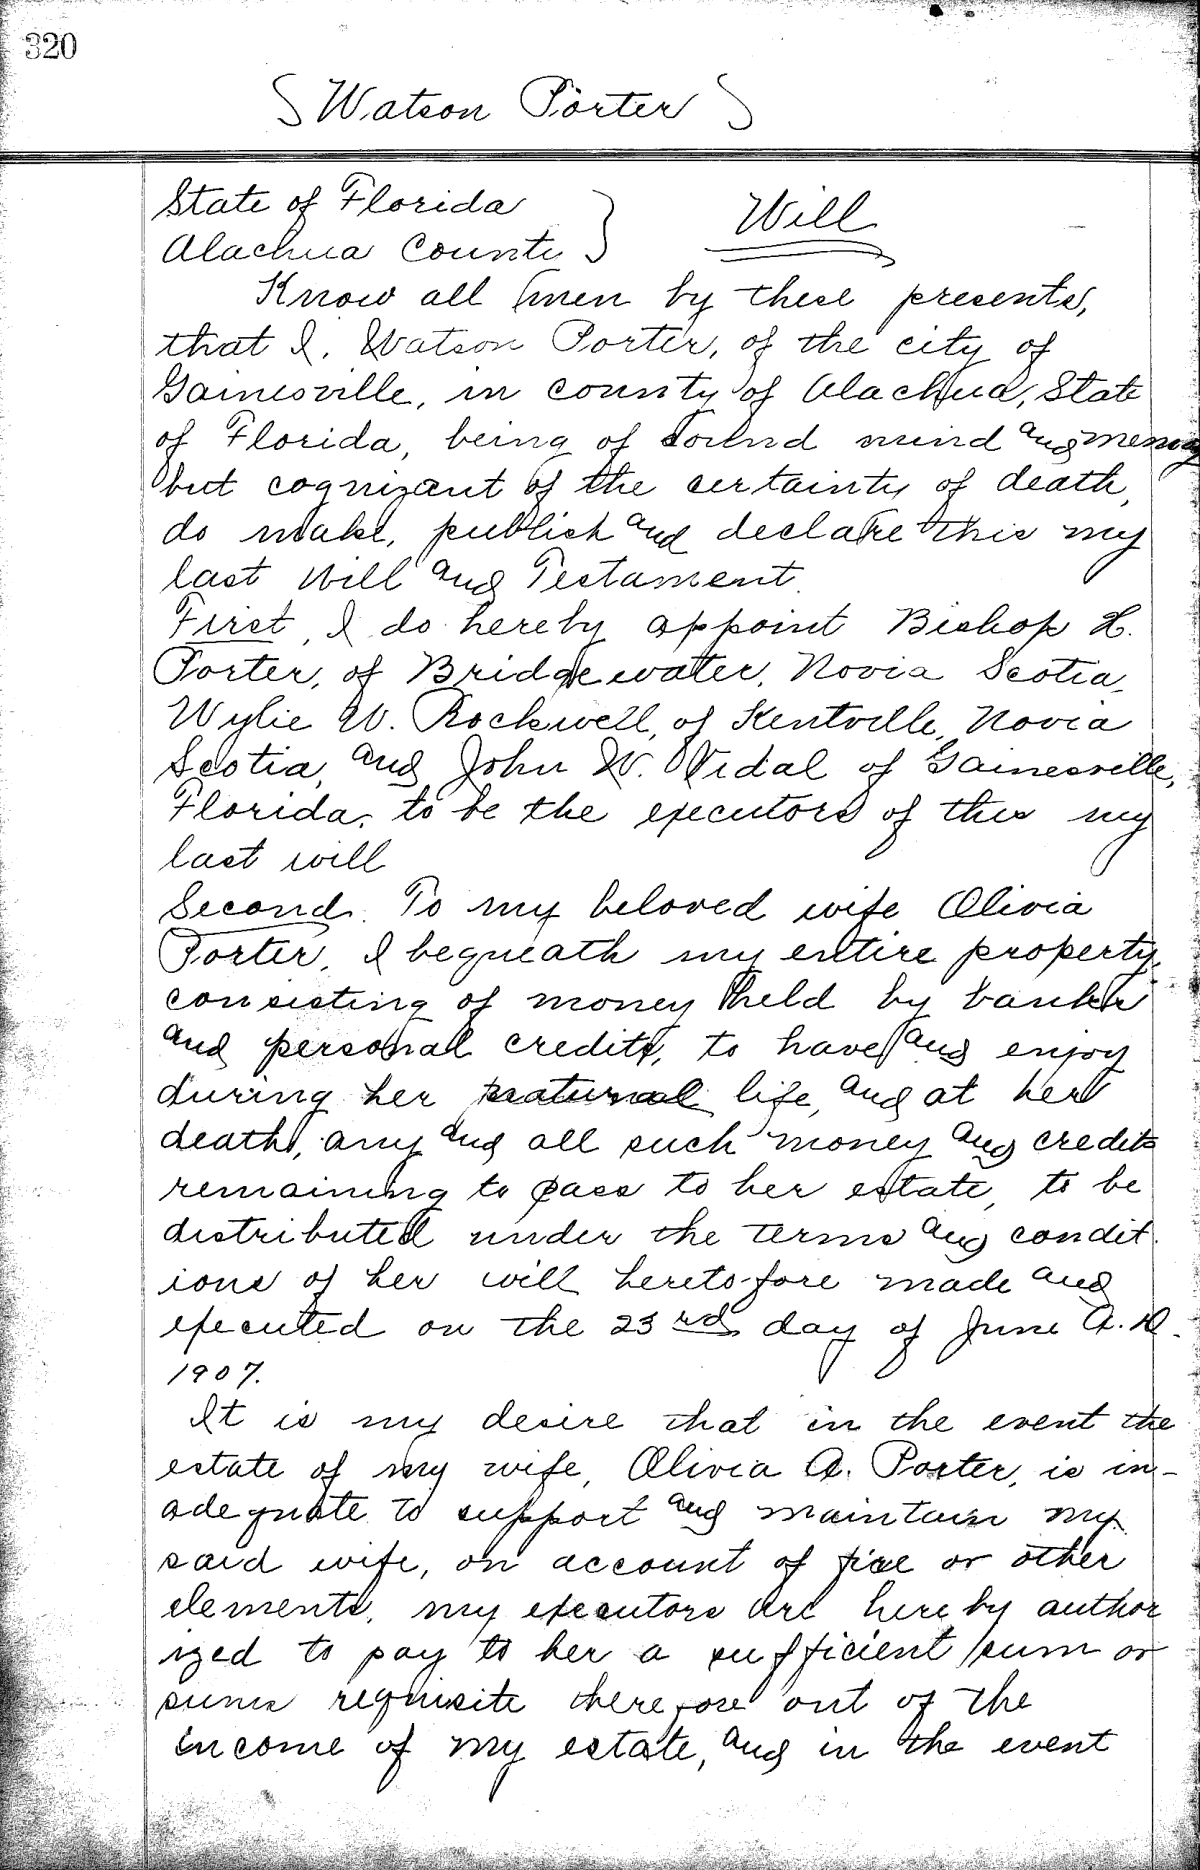 320
Watson Porter
State of Florida
Alachua County
Will
Know all men by these presents,
that I, Watson Porter, of the city of
Gainesville, in county of Alachua, State
of Florida, being of sound mind and memory
but cognizant of the certainty of death,
do make, publish and declare this my
last Will and Testament.
First, I do hereby appoint Bishop H.
Porter, of Bridgewater, Novia Scotia,
Wylie W. Rockwell, of Kentville, Novia
Scotia, and John W. Vidal of Gainesville,
Florida, to be the executors of this my
last will
Second. To my beloved wife Olivia
Porter, I bequeath my entire property,
consisting of money held by banks
and personal credits, to have and enjoy
during her natural life, and at her
death, any and all such money and credits
remaining to pass to her estate, to be
distributed under the terms and condit
ions of her will heretofore made and
executed on the 23rd day of June A.D.
1907.
It is my desire that in the event the
estate of my wife, Olivia A. Porter, is in-
adequate to support and maintain my
said wife, on account of fire or other
elements, my executors are hereby author
ized to pay to her a sufficient sum or
sums requisite therefore out of the
income of my estate, and in the event